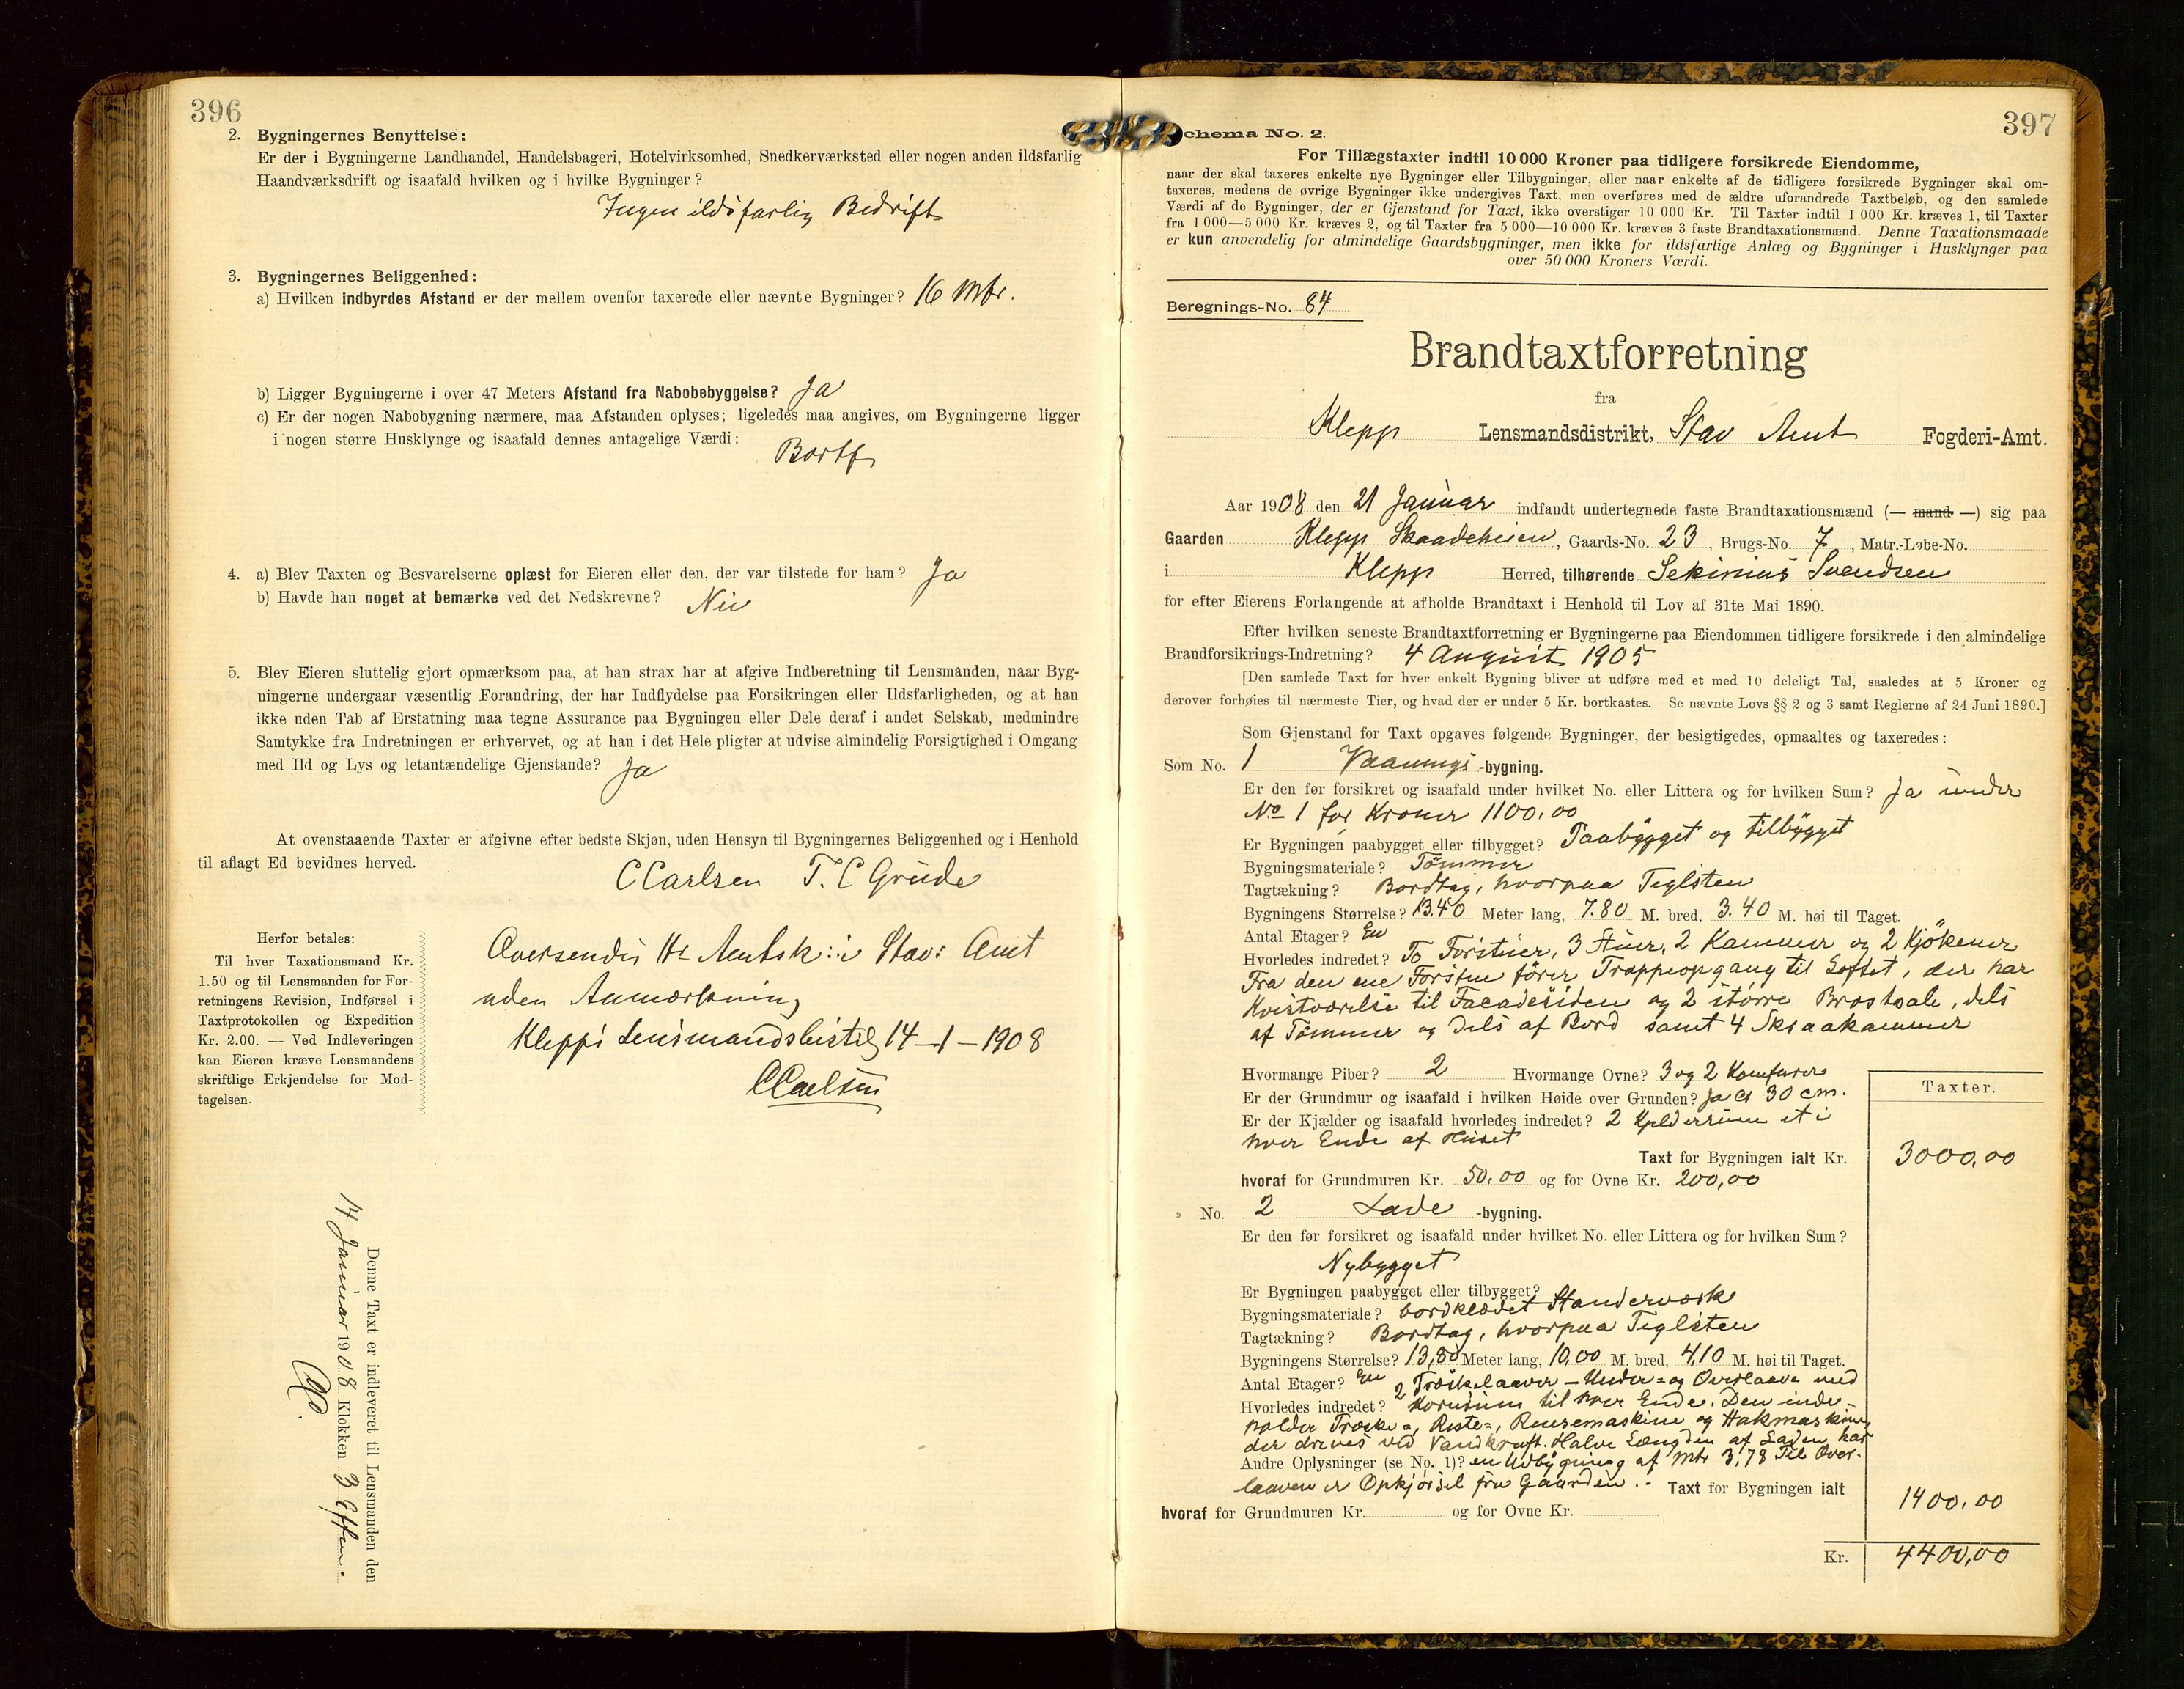 396
2. Bygningernes Benyttelse:
Er der i Bygningerne Landhandel, Handelsbageri, Hotelvirksomhed, Snedkerværksted eller nogen anden ildsfarlig
Haandværksdrift og isaafald hvilken og i hvilke Bygninger?
Ingen ildsfarlig Bedrift
3. Bygningernes Beliggenhed:
a) Hvilken indbyrdes Afstand er der mellem ovenfor taxerede eller nævnte Bygninger? 16 Mtr.
b) Ligger Bygningerne i over 47 Meters Afstand fra Nabobebyggelse? Ja
c) Er der nogen Nabobygning nærmere, maa Afstanden oplyses; ligeledes maa angives, om Bygningerne ligger
i nogen større Husklynge og isaafald dennes antagelige Værdi:
Bortf
4. a) Blev Taxten og Besvarelserne oplæst for Eieren eller den, der var tilstede for ham? Ja
b) Havde han noget at bemærke ved det Nedskrevne? Nei
5. Blev Eieren sluttelig gjort opmærksom paa, at han strax har at afgive Indberetning til Lensmanden, naar Byg-
ningerne undergaar væsentlig Forandring, der har Indflydelse paa Forsikringen eller Ildsfarligheden, og at han
ikke uden Tab af Erstatning maa tegne Assurance paa Bygningen eller Dele deraf i andet Selskab, medmindre
Samtykke fra Indretningen er erhvervet, og at han i det Hele pligter at udvise almindelig Forsigtighed i Omgang
med Ild og Lys og letantændelige Gjenstande? Ja
At ovenstaaende Taxter er afgivne efter bedste Skjøn, uden Hensyn til Bygningernes Beliggenhed og i Henhold
til aflagt Ed bevidnes herved.
C Carlsen T. C Grude
Herfor betales:
Til hver Taxationsmand Kr.
1.50 og til Lensmanden for For-
retningens Revision, Indførsel i
Taxtprotokollen og Expedition
Kr. 2.00. — Ved Indleveringen
kan Eieren kræve Lensmandens
skriftlige Erkjendelse for Mod-
tagelsen.
Oversendes Hr Amtsk: i Stav: Amt
uden Anmærkning
Klepps Lensmandsbestilg 14-1-1908
C Carlsen
Denne Taxt er indleveret til Lensmanden den
14 Januar 1908 Klokken 3 Efterm.
397
Schema No. 2.
For Tillægstaxter indtil 10 000 Kroner paa tidligere forsikrede Eiendomme,
naar der skal taxeres enkelte nye Bygninger eller Tilbygninger, eller naar enkelte af de tidligere forsikrede Bygninger skal om-
taxeres, medens de øvrige Bygninger ikke undergives Taxt, men overføres med de ældre uforandrede Taxtbeløb, og den samlede
Værdi af de Bygninger, der er Gjenstand for Taxt, ikke overstiger 10 000 Kr. Til Taxter indtil 1 000 Kr. kræves 1, til Taxter
fra 1 000—5 000 Kr. kræves 2, og til Taxter fra 5 000—10 000 Kr. kræves 3 faste Brandtaxationsmænd. Denne Taxationsmaade
er kun anvendelig for almindelige Gaardsbygninger, men ikke for ildsfarlige Anlæg og Bygninger i Husklynger paa
over 50 000 Kroners Værdi.
Beregnings-No. 84
Brandtaxtforretning
fra
Klepp Lensmandsdistrikt, Stav Amt Fogderi-Amt.
Aar 1908 den 21 Januar indfandt undertegnede faste Brandtaxationsmænd (— mand —) sig paa
Gaarden Klepp Skaadeheien, Gaards-No. 23, Brugs-No. 7, Matr.-Løbe-No.
i Klepp Herred, tilhørende Sekinius Svendsen
for efter Eierens Forlangende at afholde Brandtaxt i Henhold til Lov af 31te Mai 1890.
Efter hvilken seneste Brandtaxtforretning er Bygningerne paa Eiendommen tidligere forsikrede i den almindelige
Brandforsikrings-Indretning? 4 August 1905
[Den samlede Taxt for hver enkelt Bygning bliver at udføre med et med 10 deleligt Tal, saaledes at 5 Kroner og
derover forhøies til nærmeste Tier, og hvad der er under 5 Kr. bortkastes. Se nævnte Lovs §§ 2 og 3 samt Reglerne af 24 Juni 1890.]
Som Gjenstand for Taxt opgaves følgende Bygninger, der besigtigedes, opmaaltes og taxeredes:
Som No. 1 Vaanings-bygning.
Er den før forsikret og isaafald under hvilket No. eller Littera og for hvilken Sum? Ja under
No 1 for Kroner 1100.00
Er Bygningen paabygget eller tilbygget? Paabygget og tilbygget
Bygningsmateriale? Tømmer
Tagtækning? Bordtag, hvorpaa Teglsten
Bygningens Størrelse? 13.40 Meter lang, 7.80 M. bred, 3.40 M. høi til Taget.
Antal Etager? En
Hvorledes indredet? To Forstuer, 3 Stuer, 2 Kammer og 2 Kjøkener
Fra den ene Forstue fører Trappeopgang til Loftet, der har
Kvistværelse til Facadesiden og 2 større Brostsale, dels
af Tømmer og dels af Bord samt 4 Skraakammer
Hvormange Piber? 2 Hvormange Ovne? 3 og 2 Komfurer
Er der Grundmur og isaafald i hvilken Høide over Grunden? Ja ca 30 cm.
Er der Kjælder og isaafald hvorledes indredet? 2 Kjelderrum et i
hver Ende af Huset
Taxter.
Taxt for Bygningen ialt Kr. 3000,00
hvoraf for Grundmuren Kr. 50.00 og for Ovne Kr. 200,00
» No. 2 Lade-bygning.
Er den før forsikret og isaafald under hvilket No. eller Littera og for hvilken Sum?
Nybygget
Er Bygningen paabygget eller tilbygget?
Bygningsmateriale? bordklædet Standerværk
Tagtækning? Bordtag, hvorpaa Teglsten
Bygningens Størrelse? 13,80 Meter lang, 10,00 M. bred, 4,10 M. høi til Taget.
Antal Etager? En
2 Træskelaaver - Under- og Overlaave med
Hvorledes indredet? Kornrum til hver Ende. Den inde-
holder Træske-, Riste-, Rensemaskine og Hakmaskine
der drives ved Vandkraft. Halve Længden af Laden har
Andre Oplysninger (se No. 1)? en Udbygning af Mtr 3,78 Til Over-
laaven er Opkjørsel fra Gaarden. - Taxt for Bygningen ialt 1400,00
hvoraf for Grundmuren Kr. og for Ovne Kr.
Kr. 4400,00